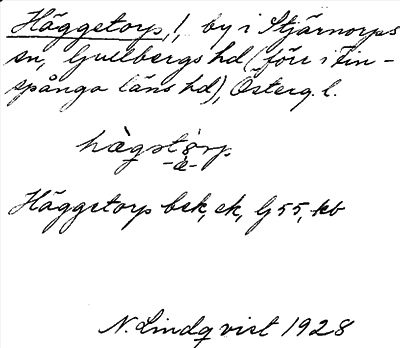 Häggetorp, !, by i Stjärnorps
sn, Gullbergs hd (förr i Fin-
spånga läns hd), Österg. l.
hàgstòrp
-ä-
Häggetorp bsk, ek, G 55, kb
N. Lindqvist 1928